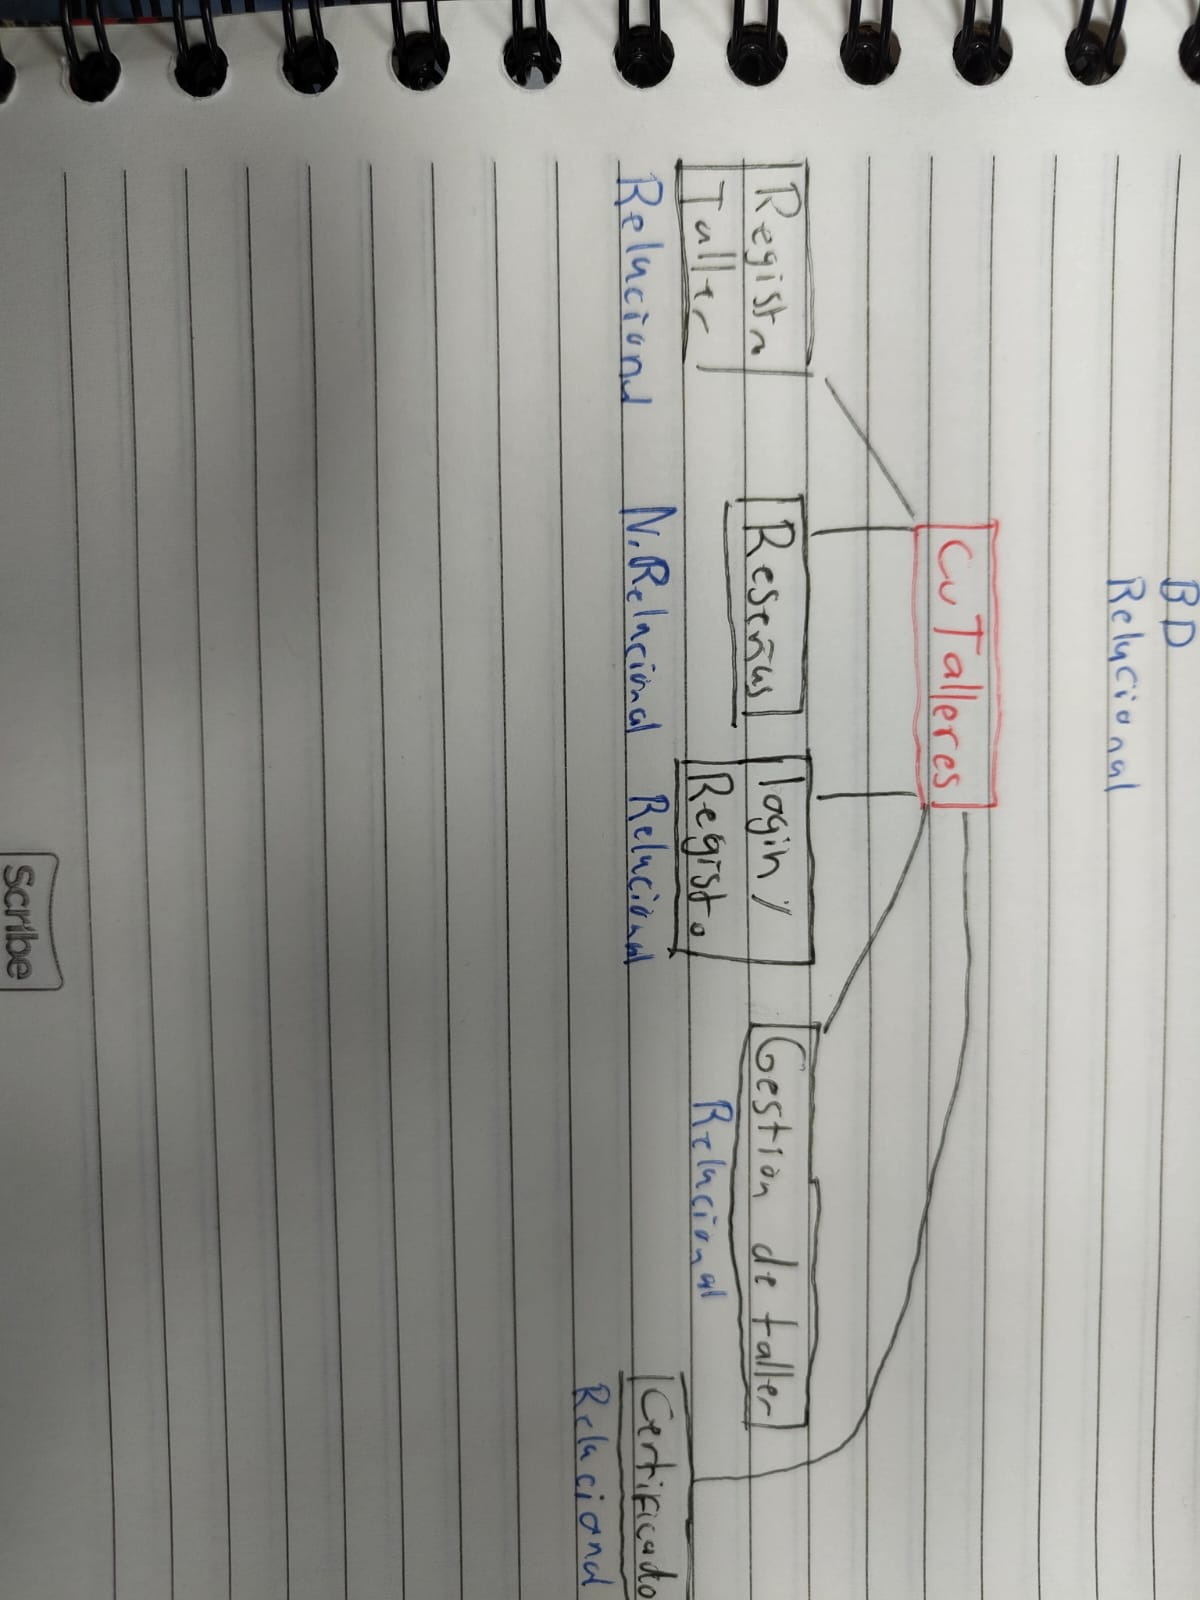 BD
Relacional
CuTalleres
Registro
Taller
Relacional
Reseñas
N.Relacional
login y
Registo
Relacional
Gestion de taller
Relacional
Certificado
Relacional
Scribe